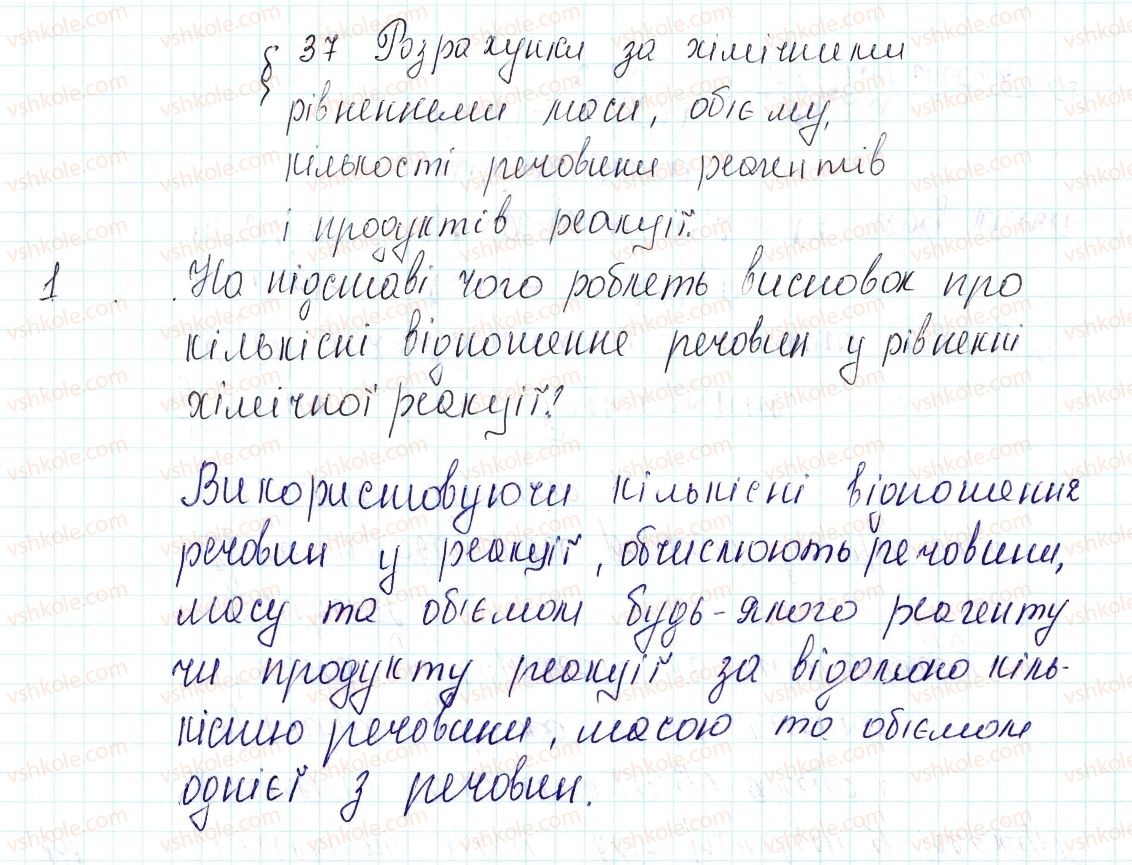 § 37 Розрахунки за хімічними
рівненнеми маси, обієму,
кількості речовини реагентів
і продуктів реакції.
1 На підставі чого роблеть висновок про
кількісні відношенне речовин у рівненні
хімічної реакції?
Використовуючи кількісні відношення
речовин у реакції, обчислюють речовини,
масу та обіємом будь-якого реагенту
чи продукту реакції за відомою кіль-
кістю речовини, масою та обіємом
однієї з речовин.